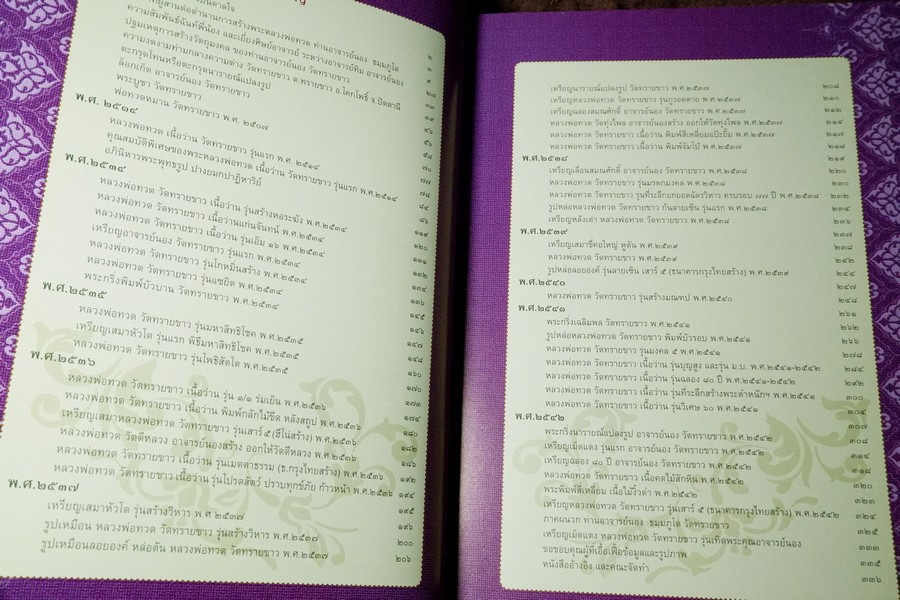 ผู้สานต่อตำนานการสร้างพระหลวงพ่อทวด ท่านอาจารย์นอง ธมฺมภูโต ๒
ความสัมพันธ์ฉันท์พี่น้อง และเยี่ยงศิษย์อาจารย์ ระหว่างอาจารย์ทิม อาจารย์นอง
ปฐมเหตุการสร้างวัตถุมงคล ของท่านอาจารย์นอง วัดทรายขาว
ความงดงามท่ามกลางความต่าง วัดทรายขาว ต.ทรายขาว อ.โคกโพธิ์ จ.ปัตตานี
ตะกรุดโทนหรือตะกรุดนารายณ์แปลงรูป
ล็อกเก็ต อาจารย์นอง วัดทรายขาว
พระบูชา วัดทรายขาว
พ่อทวดหมาน วัดทรายขาว พ.ศ. ๒๕๐๗
พ.ศ. ๒๕๑๔
หลวงพ่อทวด เนื้อว่าน วัดทรายขาว รุ่นแรก พ.ศ. ๒๕๑๔
คุณสมบัติพิเศษของพระหลวงพ่อทวด เนื้อว่าน วัดทรายขาว รุ่นแรก พ.ศ. ๒๕๑๔
อภินิหารพระพุทธรูป ปางยมกปาฏิหาริย์
พ.ศ. ๒๕๓๔
หลวงพ่อทวด วัดทรายขาว เนื้อว่าน รุ่นสร้างหอระฆัง พ.ศ. ๒๕๓๔
หลวงพ่อทวด วัดทรายขาว เนื้อว่านแก่นจันทน์ พ.ศ. ๒๕๓๔
หลวงพ่อทวด วัดทรายขาว รุ่นเอ็ม ๑๖ พ.ศ. ๒๕๓๔
เหรียญอาจารย์นอง วัดทรายขาว รุ่นแรก พ.ศ. ๒๕๓๔
หลวงพ่อทวด วัดทรายขาว รุ่นโกหมีนสร้าง พ.ศ. ๒๕๓๔
หลวงพ่อทวด วัดทรายขาว รุ่นแซยิด พ.ศ. ๒๕๓๔
พระกริ่งพิมพ์บัวบาน วัดทรายขาว พ.ศ. ๒๕๓๔
พ.ศ.๒๕๓๕
หลวงพ่อทวด วัดทรายขาว รุ่นมหาสิทธิโชค พ.ศ. ๒๕๓๕
เหรียญเสมาหัวโต รุ่นแรก พิธีมหาสิทธิโชค พ.ศ. ๒๕๓๕
หลวงพ่อทวด วัดทรายขาว รุ่นโพธิสัตโต พ.ศ. ๒๕๓๕ ๑๖๐
พ.ศ.๒๕๓๖
หลวงพ่อทวด วัดทรายขาว เนื้อว่าน รุ่น ๑/๑ ร่มเย็น พ.ศ. ๒๕๓๖ ๑๗๐
หลวงพ่อทวด วัดทรายขาว เนื้อว่าน พิมพ์กลักไม้ขีด หลังสถูป พ.ศ. ๒๕๓๖
เหรียญเสมาหลวงพ่อทวด วัดทรายขาว รุ่นเสาร์ ๕ (ฮีโน่สร้าง) พ.ศ. ๒๕๓๖ ๑๘๐
หลวงพ่อทวด วัดดีหลวง อาจารย์นองสร้าง ออกให้วัดดีหลวง พ.ศ. ๒๕๓๖ ๑๘๒
หลวงพ่อทวด วัดทรายขาว เนื้อว่าน รุ่นเมตตาธรรม (ธ.กรุงไทยสร้าง) พ.ศ. ๒๕๓๖ ๑๘๖
หลวงพ่อทวด วัดทรายขาว เนื้อว่าน รุ่นโปรดสัตว์ ปราบทุกข์ภัย ก้าวหน้า พ.ศ. ๒๕๓๖ ๑๙๒
พ.ศ.๒๕๓๗ ๑๙๔
เหรียญเสมาหัวโต รุ่นสร้างวิหาร พ.ศ. ๒๕๓๗ ๑๙๕
รูปเหมือน หลวงพ่อทวด วัดทรายขาว รุ่นสร้างวิหาร พ.ศ. ๒๕๓๗ ๑๙๖
รูปเหมือนลอยองค์ หล่อตัน หลวงพ่อทวด วัดทรายขาว พ.ศ. ๒๕๓๗ ๒๐๐
๒๐๖
เหรียญนารายณ์แปลงรูป วัดทรายขาว พ.ศ.๒๕๓๗ ๒๐๘
เหรียญหลวงพ่อทวด วัดทรายขาว รุ่นกูรอดตาย พ.ศ.๒๕๓๗ ๒๑๐
เหรียญฉลองสมณศักดิ์ อาจารย์นอง วัดทรายขาว พ.ศ.๒๕๓๗ ๒๑๒
หลวงพ่อทวด วัดทุ่งไพล อาจารย์นองสร้าง ออกให้วัดทุ่งไพล พ.ศ.๒๕๓๗ ๒๑๔
หลวงพ่อทวด วัดทรายขาว เนื้อว่าน พิมพ์สี่เหลี่ยมแป๊ะยิ้ม พ.ศ.๒๕๓๗ ๒๑๗
หลวงพ่อทวด วัดทรายขาว เนื้อว่าน พิมพ์จัมโบ้ พ.ศ.๒๕๓๗ ๒๑๘
พ.ศ.๒๕๓๘ ๒๑๙
เหรียญเลื่อนสมณศักดิ์ อาจารย์นอง วัดทรายขาว พ.ศ.๒๕๓๘ ๒๒๐
หลวงพ่อทวด วัดทรายขาว รุ่นมรดกมงคล พ.ศ.๒๕๓๘ ๒๓๐
หลวงพ่อทวด วัดทรายขาว รุ่นที่ระลึกยกยอดฉัตรวิหาร ครบรอบ ๗๗ ปี พ.ศ.๒๕๓๘ ๒๓๒
รูปหล่อหลวงพ่อทวด วัดทรายขาว ก้นลายเซ็น รุ่นแรก พ.ศ.๒๕๓๘ ๒๓๔
เหรียญหลังเต่า หลวงพ่อทวด วัดทรายขาว พ.ศ.๒๕๓๘ ๒๓๖
พ.ศ.๒๕๓๙ ๒๓๗
เหรียญเสมาขี่คอใหญ่ หูตัน พ.ศ.๒๕๓๙ ๒๓๘
หลวงพ่อทวด วัดทรายขาว พ.ศ.๒๕๓๙ ๒๔๒
รูปหล่อลอยองค์ รุ่นลายเซ็น เสาร์ ๕ (ธนาคารกรุงไทยสร้าง) พ.ศ.๒๕๓๙ ๒๔๔
พ.ศ.๒๕๔๐ ๒๔๗
หลวงพ่อทวด วัดทรายขาว รุ่นสร้างมณฑป พ.ศ.๒๕๔๐ ๒๔๘
พ.ศ.๒๕๔๑ ๒๖๑
พระกริ่งเฉลิมพล วัดทรายขาว พ.ศ.๒๕๔๑ ๒๖๒
รูปหล่อหลวงพ่อทวด วัดทรายขาว พิมพ์บัวรอบ พ.ศ.๒๕๔๑ ๒๖๖
หลวงพ่อทวด วัดทรายขาว รุ่นมงคล ๕ พ.ศ.๒๕๔๑ ๒๗๘
หลวงพ่อทวด วัดทรายขาว เนื้อว่าน รุ่นบุญสูง และรุ่น ม.บ. พ.ศ.๒๕๔๑-๒๕๔๒ ๒๘๔
หลวงพ่อทวด วัดทรายขาว เนื้อว่าน รุ่นฉลอง ๘๐ ปี พ.ศ.๒๕๔๑-๒๕๔๒ ๒๙๒
หลวงพ่อทวด วัดทรายขาว เนื้อว่าน รุ่นที่ระลึกสร้างพระตำหนักฯ พ.ศ.๒๕๔๑ ๓๐๐
หลวงพ่อทวด วัดทรายขาว เนื้อว่าน รุ่นวิเศษ ๖๐ พ.ศ.๒๕๔๑ ๓๐๔
พ.ศ.๒๕๔๒ ๓๐๗
พระกริ่งนารายณ์แปลงรูป อาจารย์นอง วัดทรายขาว พ.ศ.๒๕๔๒ ๓๐๘
เหรียญเม็ดแตง รุ่นแรก อาจารย์นอง วัดทรายขาว พ.ศ.๒๕๔๒ ๓๑๔
เหรียญฉลอง ๘๐ ปี อาจารย์นอง วัดทรายขาว พ.ศ.๒๕๔๒ ๓๑๘
หลวงพ่อทวด วัดทรายขาว เนื้อคดไม้สักหิน พ.ศ.๒๕๔๒ ๓๒๐
พระพิมพ์สี่เหลี่ยม เนื้อไม้งิ้วดำ พ.ศ.๒๕๔๒ ๓๒๓
เหรียญหลวงพ่อทวด วัดทรายขาว รุ่นเสาร์ ๕ (ธนาคารกรุงไทยสร้าง) พ.ศ.๒๕๔๒ ๓๒๔
ภาคผนวก ท่านอาจารย์นอง ธมฺมภูโต วัดทรายขาว ๓๒๕
เหรียญเม็ดแตง หลวงพ่อทวด วัดทรายขาว รุ่นเทิดพระคุณอาจารย์นอง ๓๓๓
ขอขอบคุณผู้ที่เอื้อเฟื้อข้อมูลและรูปภาพ ๓๓๕
หนังสืออ้างอิง และคณะจัดทำ ๓๓๖